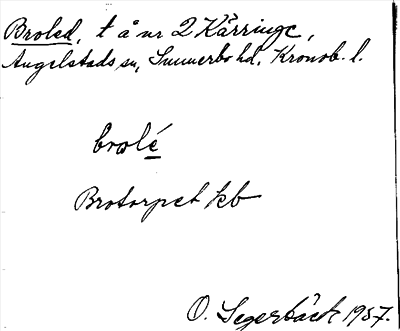 Broled, t å nr 2 Kärringe,
Angelstads sn, Sunnerbo hd, Kronob. l.
brolé
Brotorpet kb
O. Segerbäck 1957.